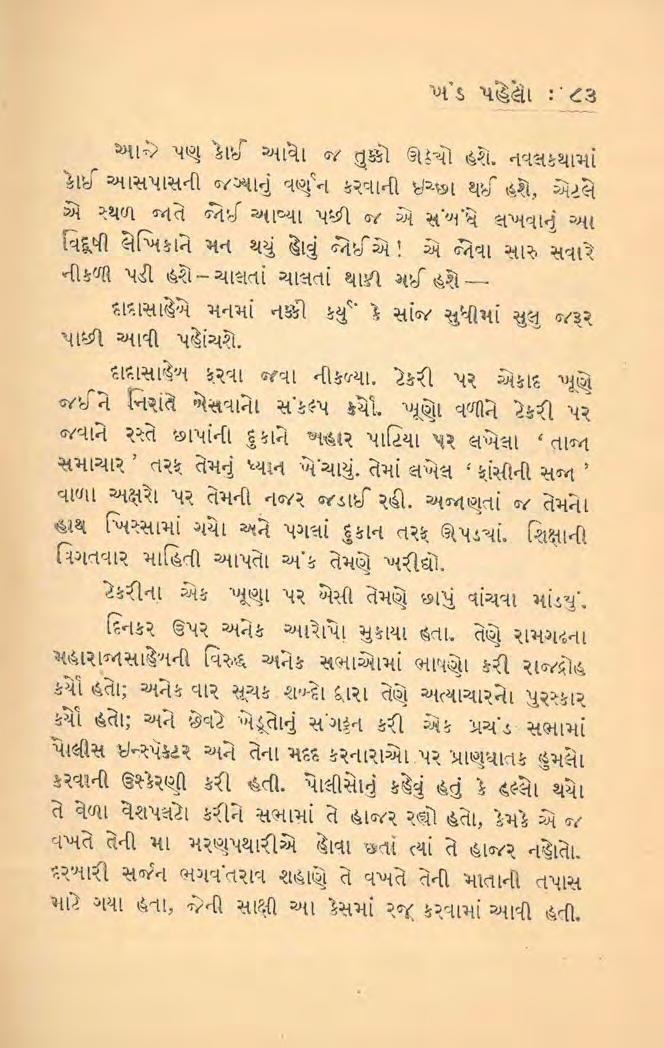 ખંડ પહેલો : ૮૩
આજે પણ કોઈ આવો જ તુક્કો ઊઠ્યો હશે. નવલકથામાં
કોઈ આસપાસની જગ્યાનું વર્ણન કરવાની ઇચ્છા થઈ હશે, એટલે
એ સ્થળ જાતે જોઈ આવ્યા પછી જ એ સંબંધે લખવાનું આ
વિદૂષી લેખિકાને મન થયું હોવું જોઈએ! એ જોવા સારુ સવારે
નીકળી પડી હશે – ચાલતાં ચાલતાં થાકી ગઈ હશે —
દાદાસાહેબે મનમાં નક્કી કર્યું કે સાંજ સુધીમાં સુલુ જરૂર
પાછી આવી પહોંચશે.
દાદાસાહેબ ફરવા જવા નીકળ્યા. ટેકરી પર એકાદ ખૂણે
જઈને નિરાંતે બેસવાનો સંકલ્પ કર્યો. ખૂણો વળીને ટેકરી પર
જવાને રસ્તે છાપાંની દુકાને બહાર પાટિયા પર લખેલા ‘ તાજા
સમાચાર ’ તરફ તેમનું ધ્યાન ખેંચાયું. તેમાં લખેલ ‘ ફાંસીની સજા ’
વાળા અક્ષરો પર તેમની નજર જડાઈ રહી. અજાણતાં જ તેમનો
હાથ ખિસ્સામાં ગયો અને પગલાં દુકાન તરફ ઊપડ્યાં. શિક્ષાની
વિગતવાર માહિતી આપતો અંક તેમણે ખરીદ્યો.
ટેકરીના એક ખૂણા પર બેસી તેમણે છાપું વાંચવા માંડ્યું.
દિનકર ઉપર અનેક આરોપો મુકાયા હતા. તેણે રામગઢના
મહારાજાસાહેબની વિરુદ્ધ અનેક સભાઓમાં ભાષણો કરી રાજદ્રોહ
કર્યો હતો; અનેક વાર સૂચક શબ્દો દ્વારા તેણે અત્યાચારનો પુરસ્કાર
કર્યો હતો; અને છેવટે ખેડૂતોનું સંગઠન કરી એક પ્રચંડ સભામાં
પોલીસ ઇન્સ્પેક્ટર અને તેના મદદ કરનારાઓ પર પ્રાણઘાતક હુમલો
કરવાની ઉશ્કેરણી કરી હતી. પોલીસોનું કહેવું હતું કે હલ્લો થયો
તે વેળા વેશપલટો કરીને સભામાં તે હાજર રહ્યો હતો, કેમકે એ જ
વખતે તેની મા મરણપથારીએ હોવા છતાં ત્યાં તે હાજર નહોતો.
દરબારી સર્જન ભગવંતરાવ શહાણે તે વખતે તેની માતાની તપાસ
માટે ગયા હતા, જેની સાક્ષી આ કેસમાં રજૂ કરવામાં આવી હતી.